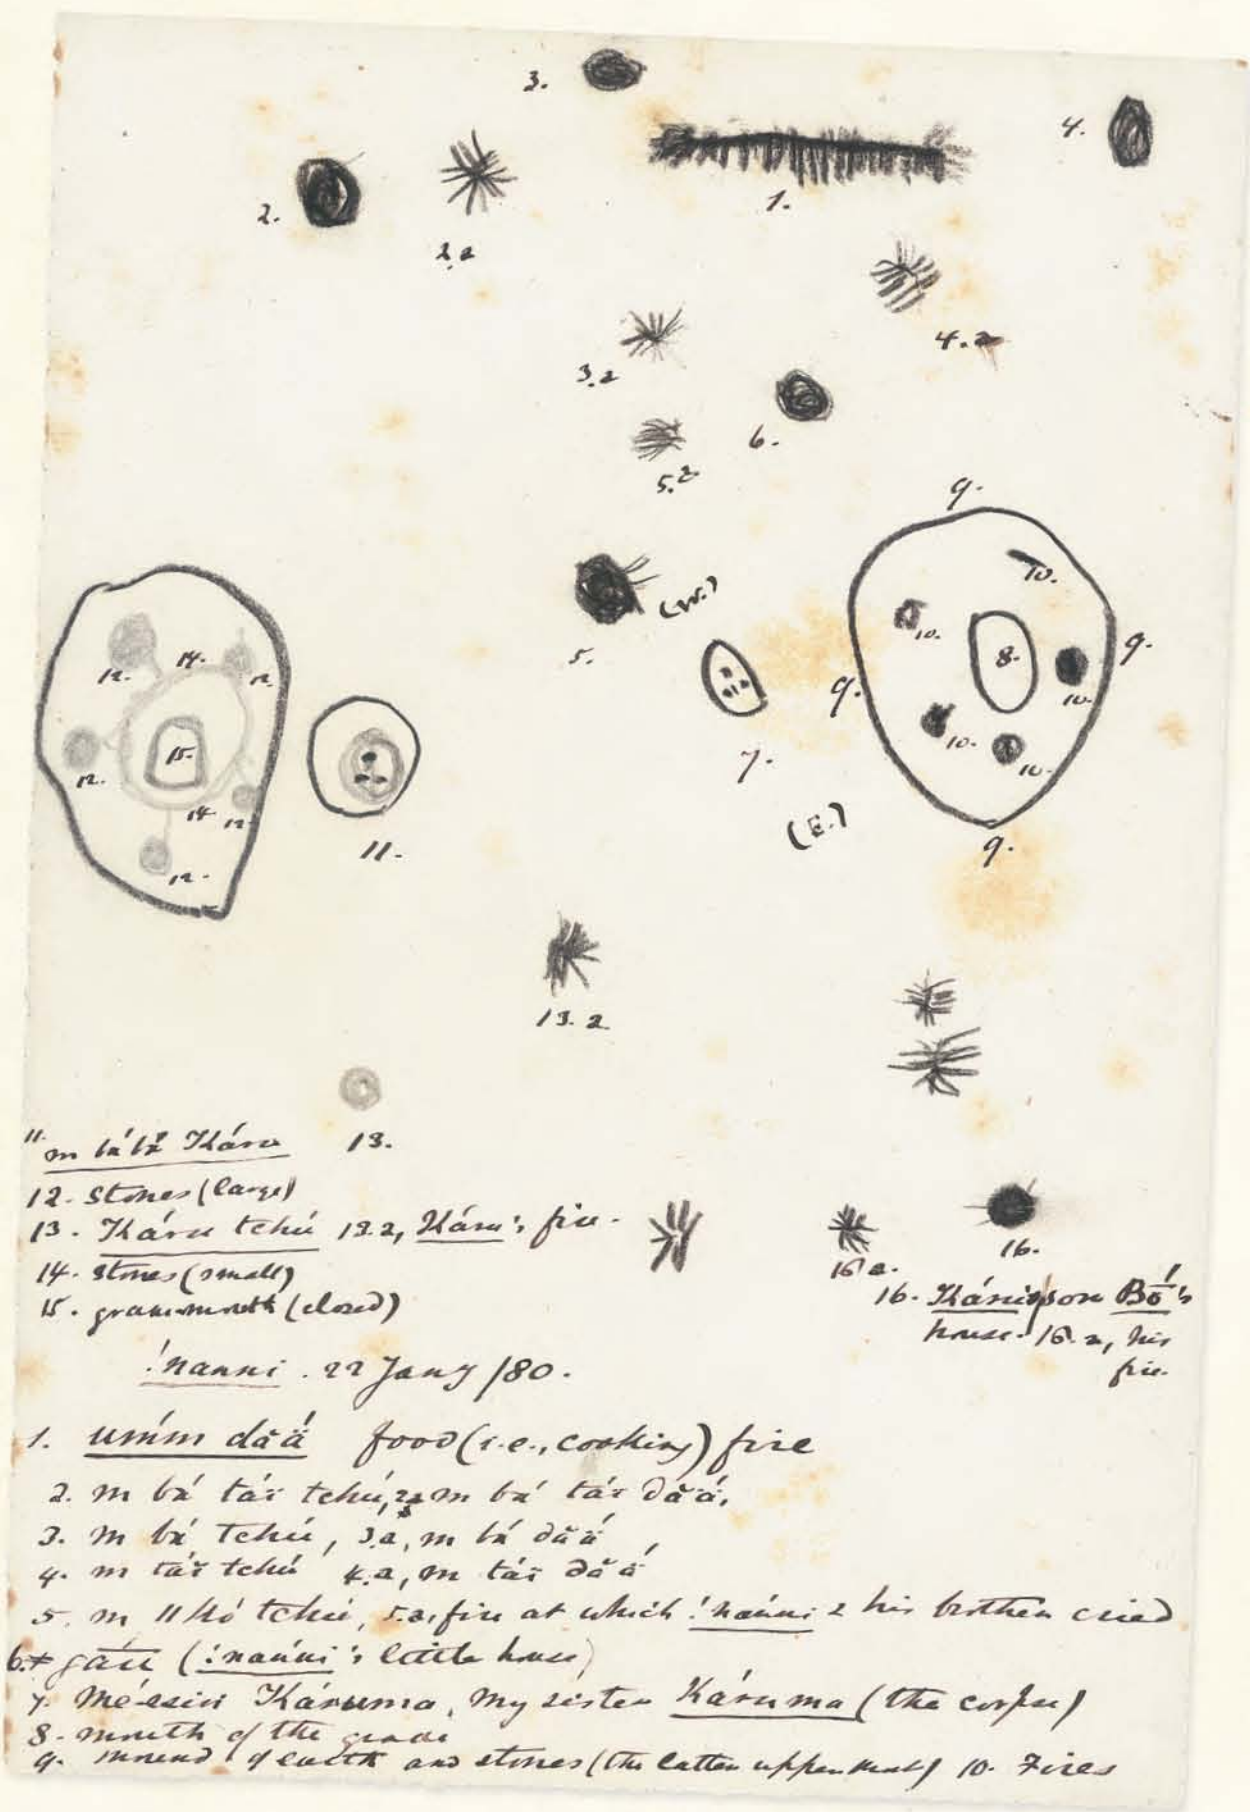 3.
4.
2.
1.
2.a
4.a
3.a
6.
5.a
9.
10.
(W.)
5.
12.
14.
12.
10.
8.
9.
9.
10.
7.
15.
12.
10.
10.
14
12.
11.
(E.)
9.
12.
13.a
13.
11. m bá bá Káru
12. Stones (large)
13. Káru tchú 13.a, Káru's fire.
14. Stones (small)
15. grave mouth (closed)
16.
16 a.
16. son Bō's
house. 16.a, his
fire.
!nanni. 22 Jany /80.
1. umm dăă food (i.e., cooking) fire
2. m bá tái tchú, 2a m bá tái dăă,
3. m bá tchú, 3.a, m bá dăă
4. m tái tchú 4.a, m tái dăă
5. m tchú, 5.a, fire at which !nanni & his brother cried
6. (!nanni's little house)
7. Káruma, my sister Káruma (the corpse)
8. mouth of the grave
9. mound of earth and stones (the latter uppermost) 10. Fires